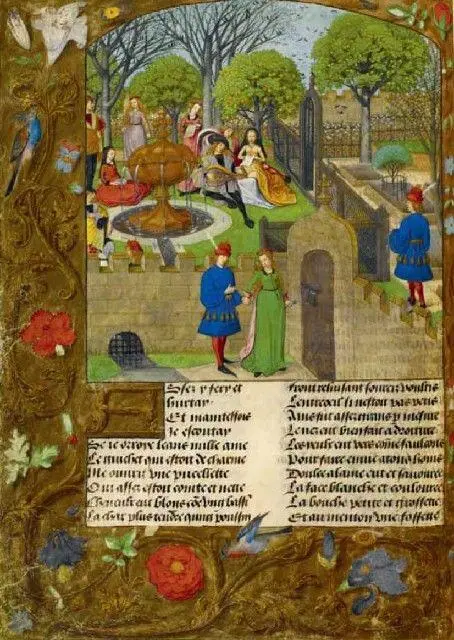 Assez y fery et
hurtay
Et maintesfois
Je escoutay
Se Je orroye leans nulle ame
Le guichet qui estoit de charme
Me ouvrit une pucellette
Qui assez estoit cointe et nette
Cheveulx eut blons côe ung bassi
La char plus tendre qung poussin
Front reluisant sourcis voultis
Lentroeil si nestoit pas petis
Ains fut assez grans p mesure
Le nez eut bien fait a droiture
Les yeulx eut vers côme faulcons
Pour faire envie a homs
Doulce alaine eut et savouree
La face blanche et coulouree
La bouche petite et grossette
Et au menton une fossette